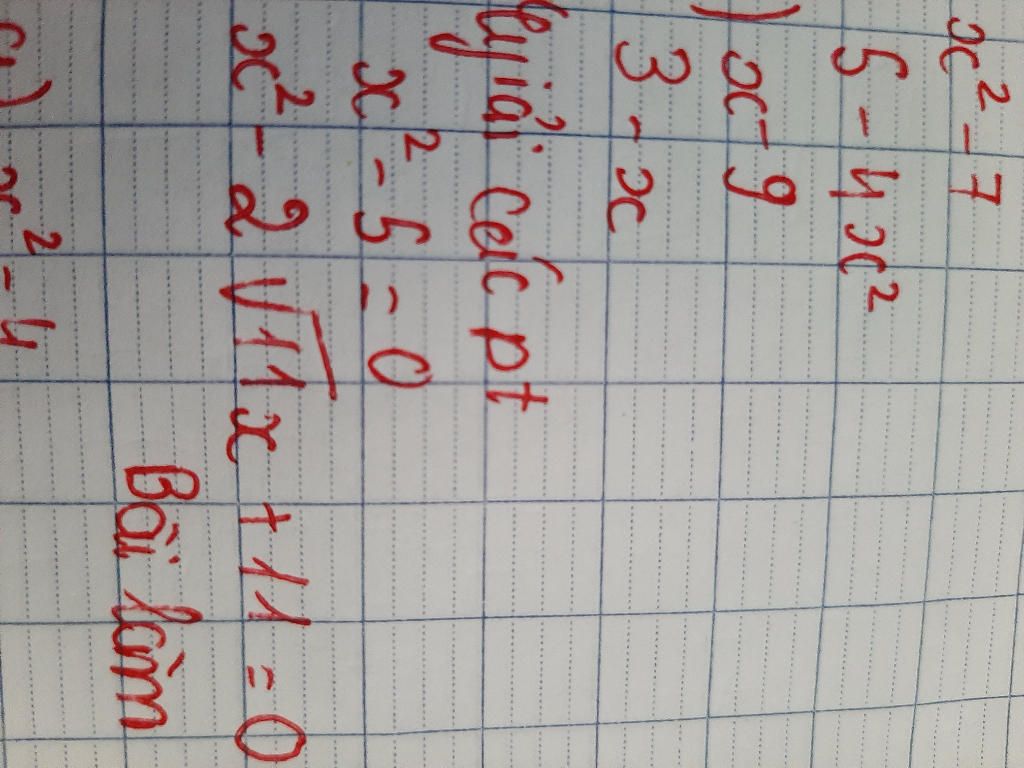 x² - 7
5 - 4x²
) x - 9
3 - x
giải các pt
x² - 5 = 0
x² - 2√11 x + 11 = 0
Bài làm
a) x² - 4